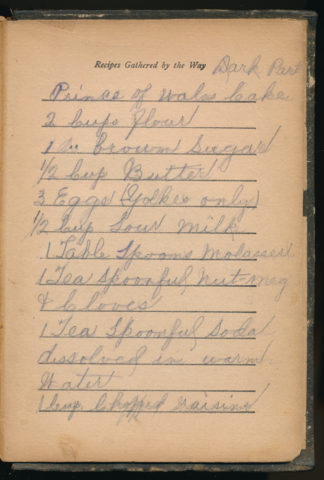 Recipes Gathered by the Way Dark Part
Prince of Wales Cake
2 Cups Flour
1 " Brown Sugar
1/2 Cup Butter
3 Eggs (Yolkes only)
1/2 Cup Sour Milk
1 Table Spoons Molasses
1 Tea Spoonful Nut-meg
& Cloves
1 Tea Spoonful Soda
dissolved in warm
Water
1 Cup Chopped raisins